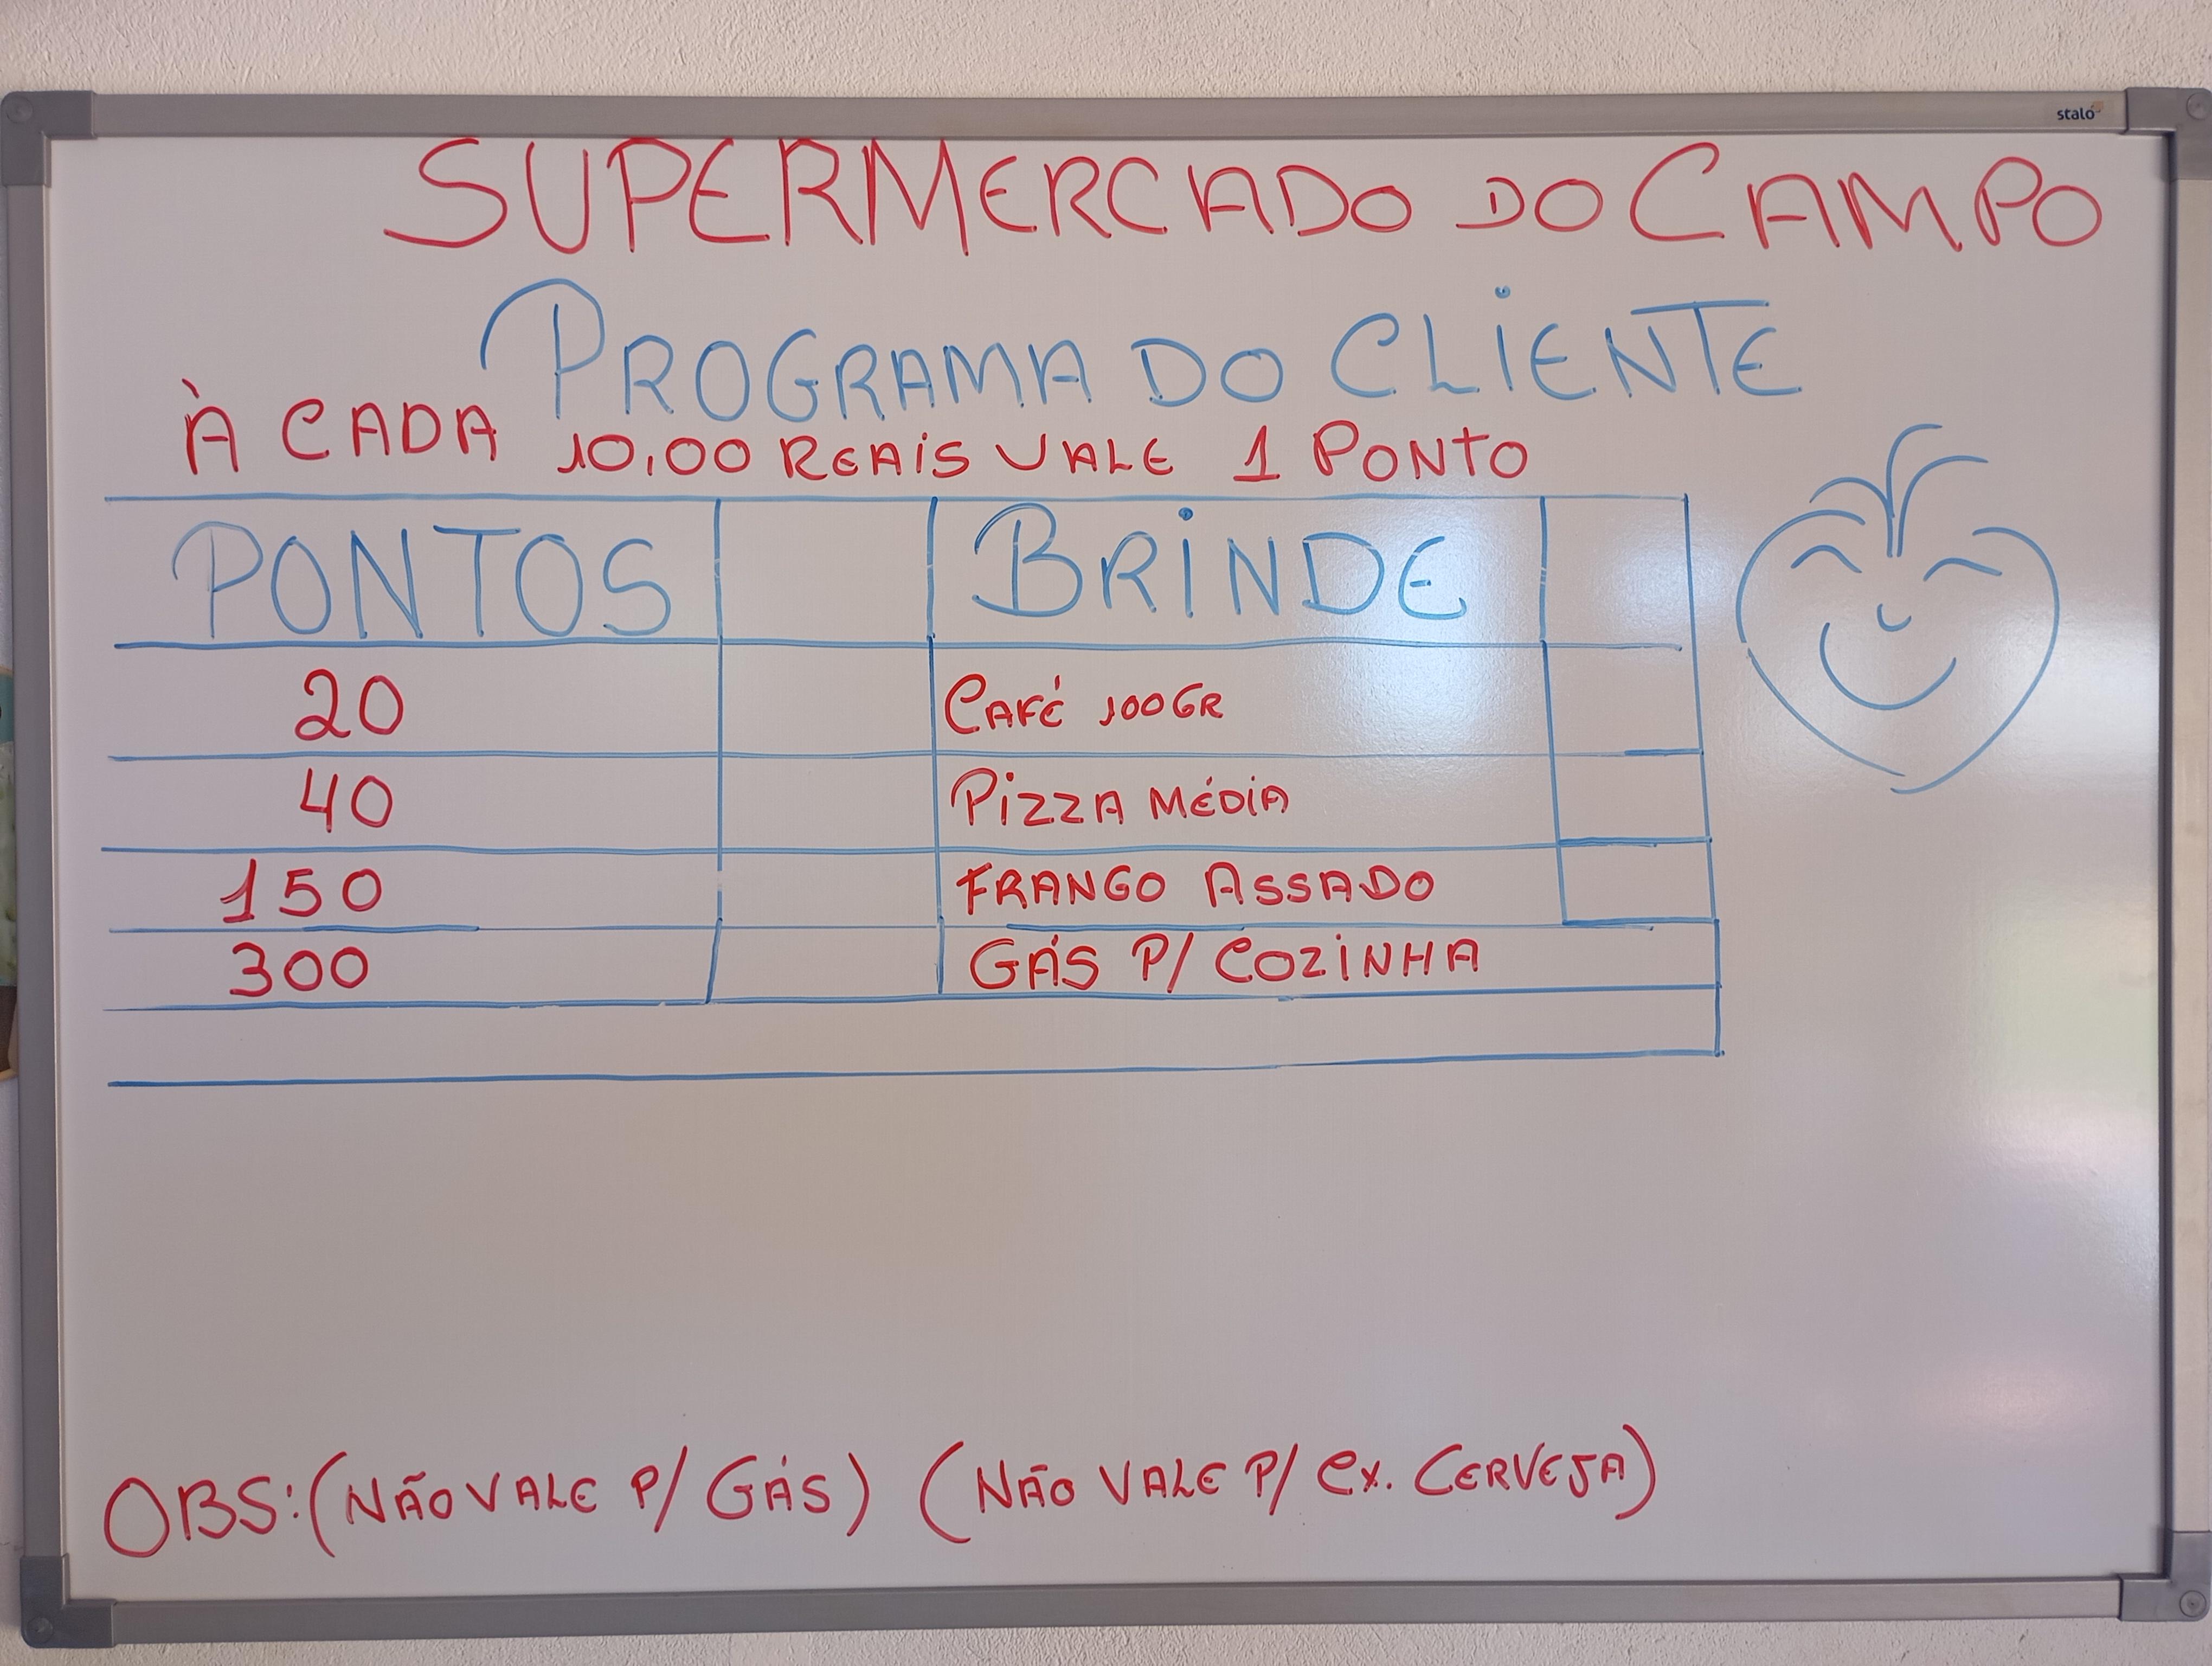 stalo
SUPERMERCADO DO CAMPO
PROGRAMA DO CLIENTE
À CADA 10,00 REAIS VALE 1 PONTO
PONTOS BRINDE
20 CAFÉ 100GR
40 PIZZA MÉDIA
150 FRANGO ASSADO
300 GÁS P/ COZINHA
OBS: (NÃO VALE P/ GÁS) (NÃO VALE P/ CX. CERVEJA)